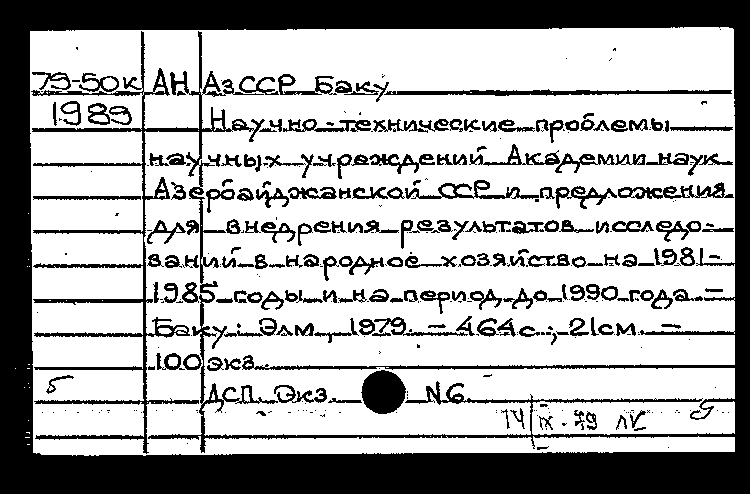 79-50к АН АзССР Баку
1989 Научно-технические проблемы
научных учреждений Академии наук
Азербайджанской ССР и предложения
для внедрения результатов исследо-
ваний в народное хозяйство на 1981-
1985 годы и на период до 1990 года. –
Баку: Элм, 1979. – 464с.; 21см. –
100 экз.
Б ДСП. Экз. N6.
14/IX-79